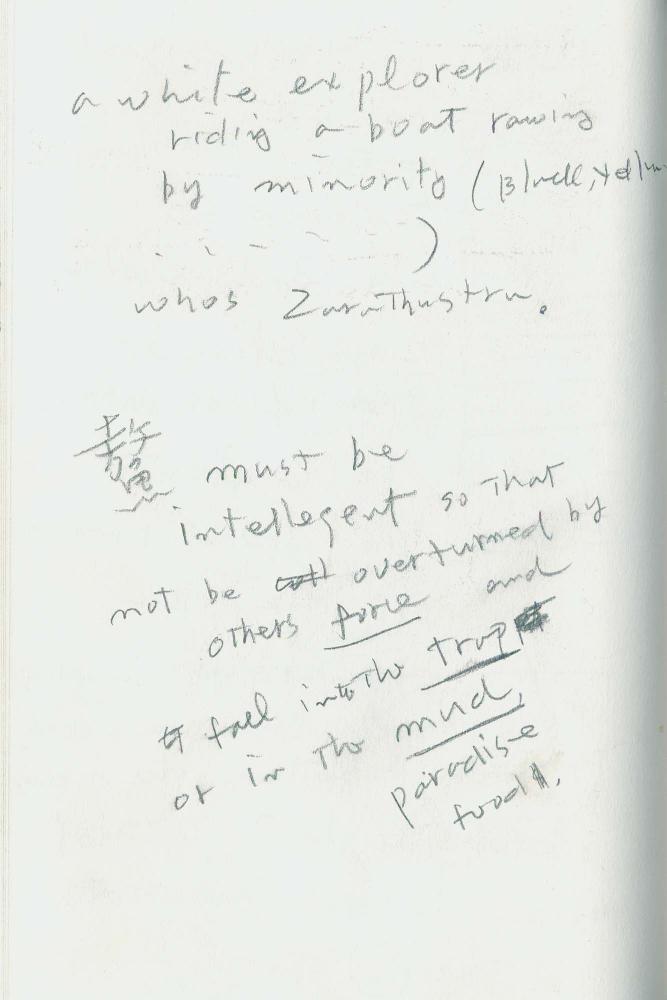 a white explorer
riding a boat rawing
by minority (Black, Yellow
. . - - - )
whos Zarathustra.
鼇 must be
intellegent so that
not be overturned by
others force and
fall into the trap
or in the mud,
paradise
food.